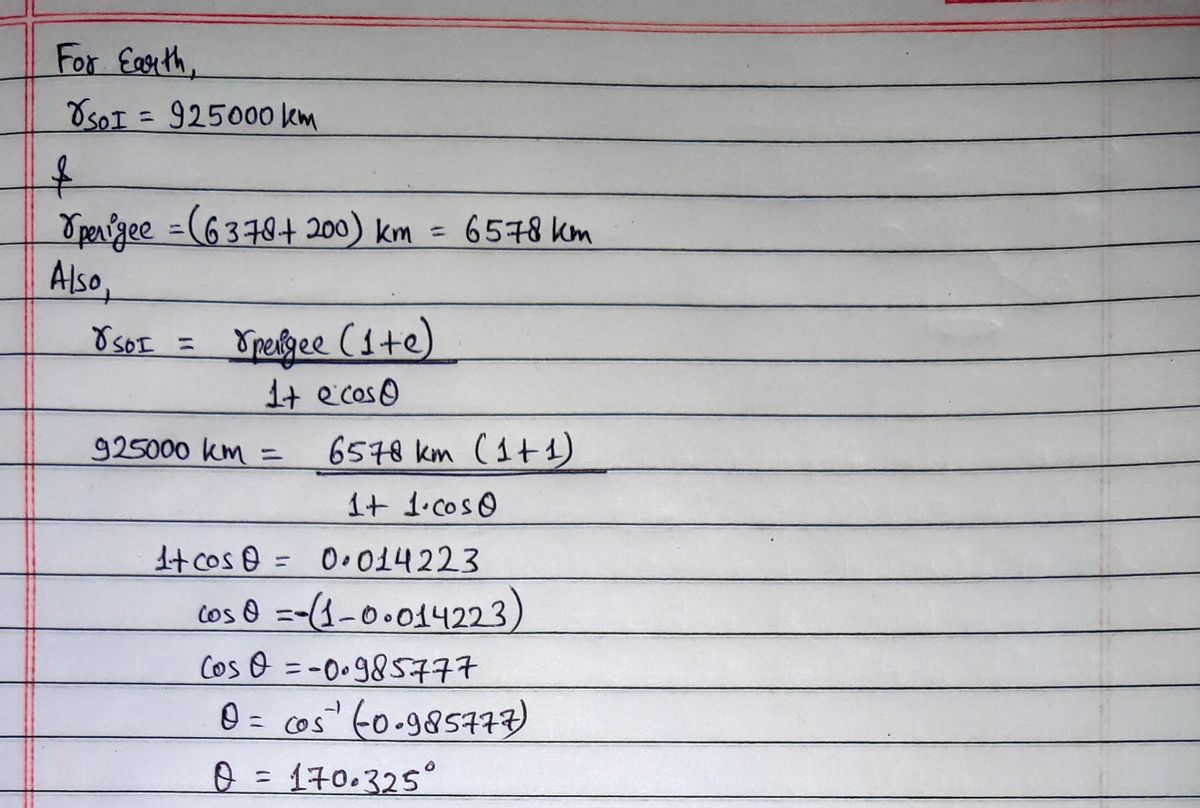 For Earth,
rSOI = 925000 km
&
rperigee = (6378 + 200) km = 6578 km
Also,
rSOI = rperigee (1+e)
1+ e cosθ
925000 km = 6578 km (1+1)
1+ 1·cosθ
1+cosθ = 0.014223
cosθ =-(1-0.014223)
cosθ = -0.985777
θ = cos⁻¹ (-0.985777)
θ = 170.325°